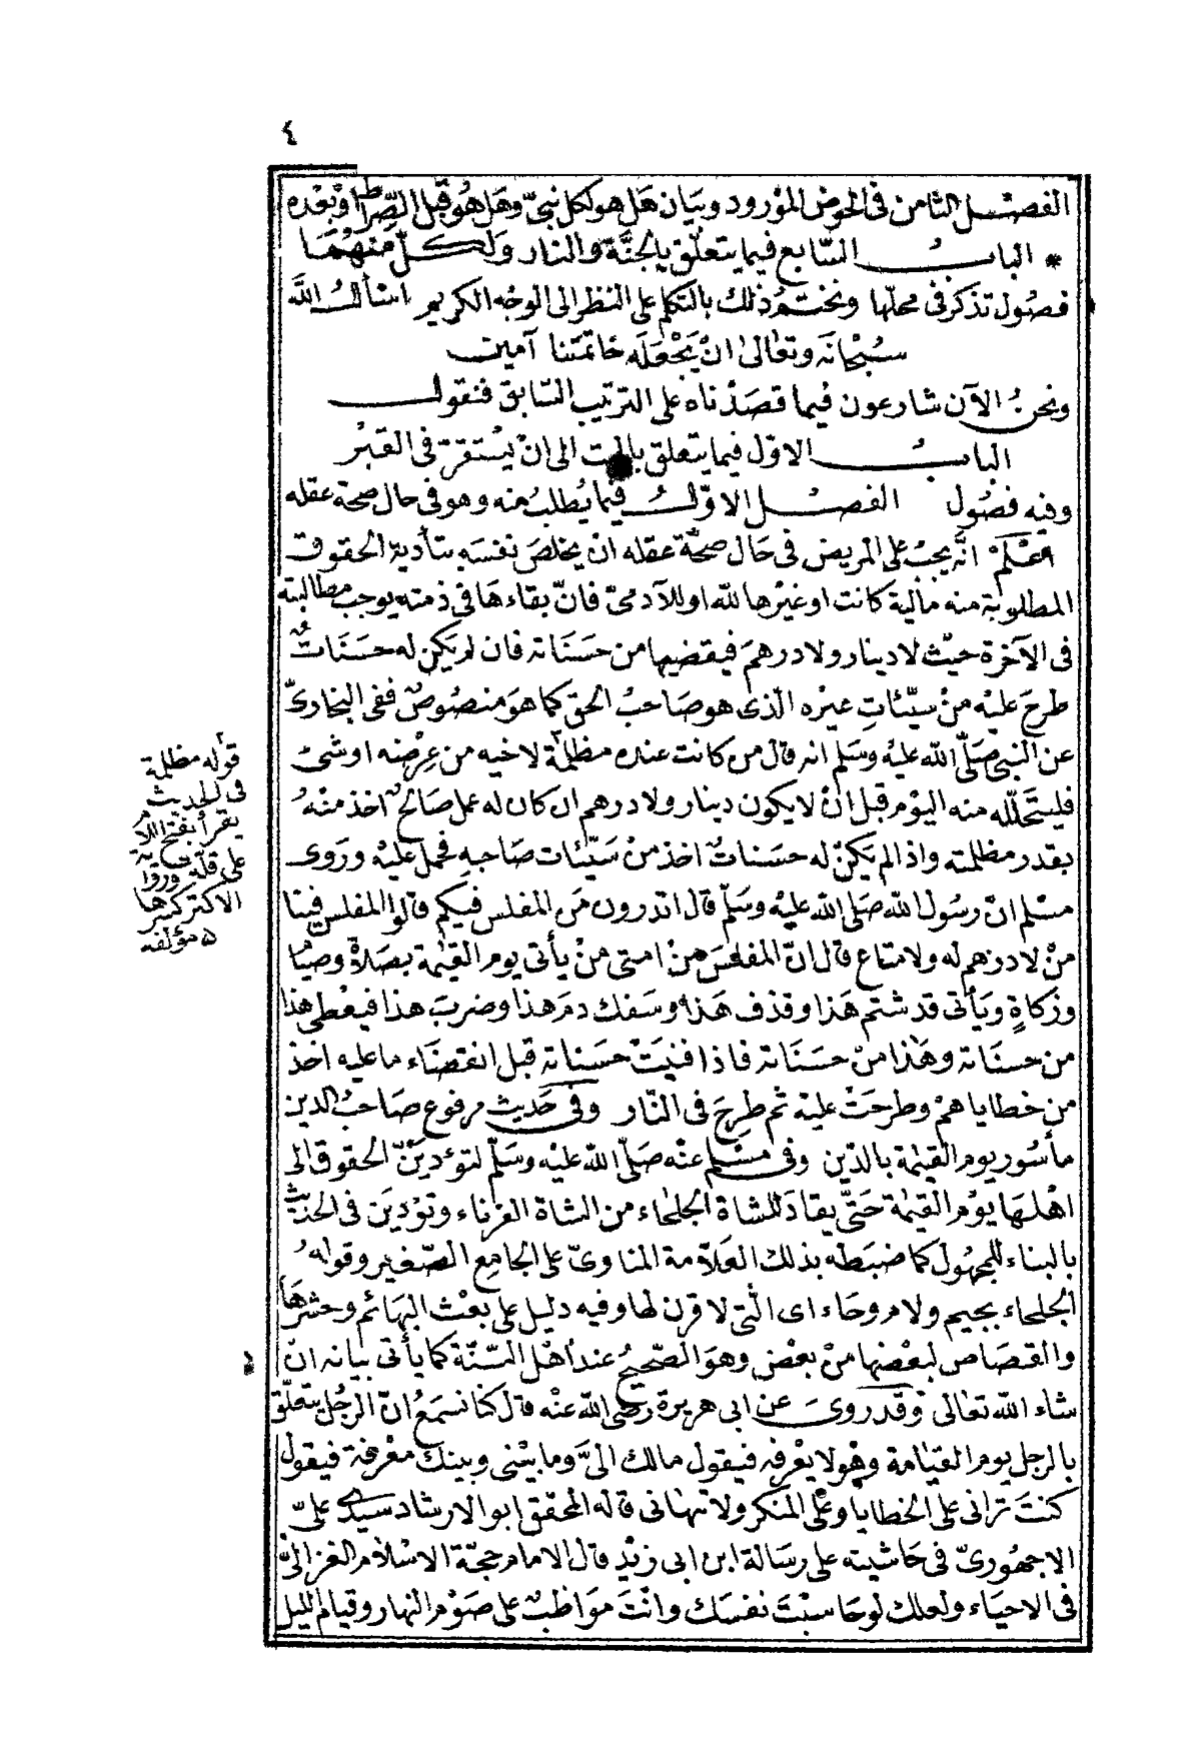 ٤
الفصل الثامن فى الحوض المورود وبيان هل هو لكل نبىّ وهل هُو قبل الصِّراط او بَعْده
* الباب السّابع فيما يتعلّق بالجنَّة والنار ولكلّ منهُمَا
فصُول تذكر فى محلّها ونختمُ ذلك بالتكلم على النظر الى الوجْه الكريم اسْأل اللهَ
سُبْحانَه وتعالىٰ انْ يَجْعَلَه خَاتمَتنا آمين
ونحنُ الآن شارعون فيما قصَدْناه على الترتيب السّابق فنقول
البابُ الاوّل فيما يتعلق بالموت الى انْ يَسْتقرّ فى القبْر
وفيه فصُول الفصلُ الاوّلُ فيمَا يُطلبُ منه وهو فى حال صحة عقله
اعْلَمْ انّه يجبُ على المريض فى حَال صحّة عقله انْ يخلصَ نفسَه بتأدية الحقوق
المطلوبة منه مالية كانت او غيْرها لله او للآدمىّ فانّ بقاءهَا فى ذمته يوجب مطالبته
فى الآخرة حيْث لا دينار ولا درهمَ فيقضيها من حَسَنَاته فان لم يَكن له حَسَنَاتٌ
طرحَ عليْه منْ سيّئاتِ غيْره الّذى هو صَاحبُ الحق كما هوَ منصُوصٌ ففى البخارىّ
عن النبى صَلّى الله عليْه وسَلم انه قال من كانت عنده مظلمَة لاخيه من عِرْضه او شىْ
فليتحَلّله منه اليوْم قبل انْ لا يكون دينار ولا درهم ان كان له عمل صَالحٌ اخذ منْهُ
بقدر مظلمته واذا لم يَكنْ له حسَناتٌ اخذ منْ سَيّئات صَاحبِه فحمل عليْه ورَوى
مسْلم انّ رسُول الله صَلى الله عليْه وسَلّم قال اتدرون مَن المفلس فيكم قالوا المفلس فينا
منْ لا درْهم له ولا متاع قال انّ المفلسَ منْ امتى منْ يأتى يوم القيٰمة بصَلاةْ وصيَام
وزكاةٍ ويَأتى قد شتم هَذا وقذف هَذا وسَفك دمَ هذا وضربَ هذا فيعْطى هذا
من حسنَاته وهَذا منْ حسَنَاته فاذا فنيَتْ حسَناته قبل انقضَاء ما عليه اخذ
من خطاياهمْ وطرحَتْ عليْه ثم طرِحَ فى النّار وفى حَديث مرفوع صَاحبُ الدين
مأسُور يوم القيٰمة بالدّين وفى مسْلم عنْه صَلّى الله عليْه وسَلّم لتؤديَنّ الحقوق الى
اهْلهَا يوْم القيٰمة حَتّى يقادَ للشاة الجلحاء من الشاة القرناء وتؤديَن فى الحديث
بالبناء للمجهول كما ضبَطه بذلك العَلاّمة المناوىّ على الجامِع الصّغير وقولهُ
الجلحاء بجيم ولام وحَاء اى الّتى لا قرن لها وفيه دليل على بعْث البَهائم وحشرهَا
والقصَاص لبعْضها منْ بعْض وهوَ الصّحيحُ عند اهْل السّنّة كما يأتى بيانه انْ
شاء الله تعالى وقد روىَ عن ابى هريرة رضى الله عنْه قال كنا نسمَعُ انّ الرجُل يتعلّق
بالرجل يوم القيٰامة وهْو لا يعْرفه فيقول مالك الىَّ وما بيْنى وبينكَ معْرفة فيقول
كنتَ ترَانى على الخطايا وعلى المنكر ولا تنهانى قاله المحقق ابو الارشاد سيدى علىّ
الاجهُورىّ فى حَاشيته على رسَالة ابن ابى زيْد قال الامام حجّة الاسْلام الغزالىّ
فى الاحيَاء ولعلك لو حَاسبْتَ نفسَك وانْتَ موَاظبٌ على صَوْم النهار وقيام الليل
قوله مظلمة
فى الحديث
يقرأ بفتح اللام
على قلة وروا ية
الاكثر كسرها
ه مؤلفه